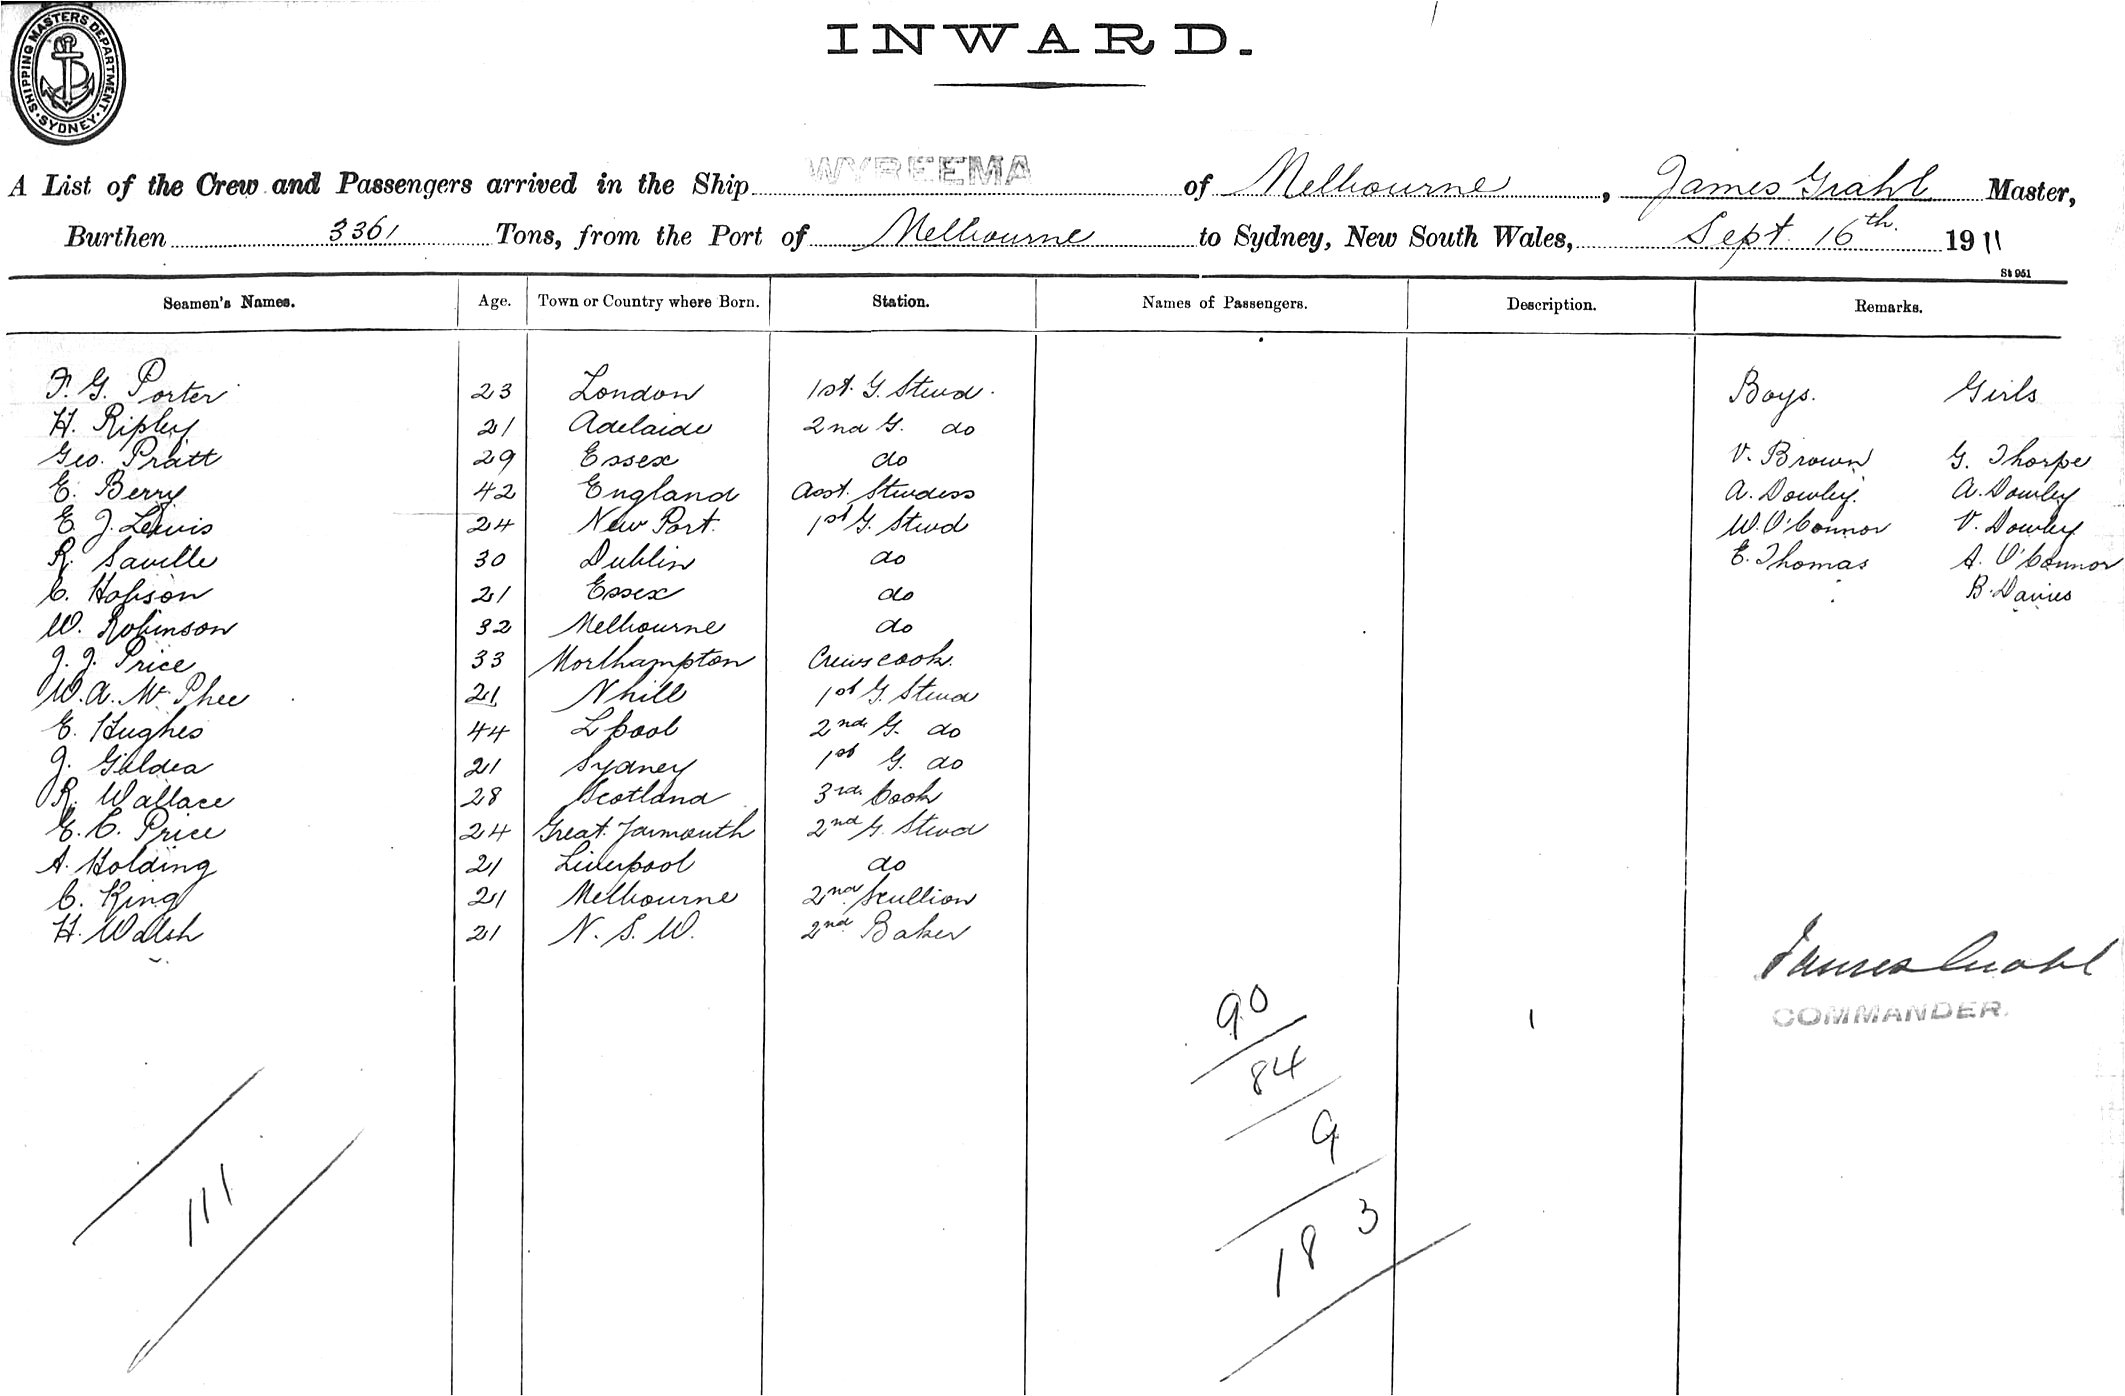 SHIPPING MASTERS DEPARTMENT.
SYDNEY
INWARD.
A List of the Crew and Passengers arrived in the Ship WYREEMA of Melbourne, James Grahl Master,
Burthen 3361 Tons, from the Port of Melbourne to Sydney, New South Wales, Sept. 16th. 1911
St 951
Seamen's Names. Age. Town or Country where Born. Station. Names of Passengers. Description. Remarks.
F. G. Porter 23 London 1st. G. Stewd. Boys. Girls
H. Ripley 21 Adelaide 2nd G. do
Geo. Pratt 29 Essex do V. Brown G. Thorpe
E. Berry 42 England Asst. Stewdess A. Dowley. A. Dowley
E. J. Lewis 24 New Port. 1st G. Stwd W. O'Connor V. Dowley
R. Saville 30 Dublin do E. Thomas A. O'Connor
C. Hobson 21 Essex do B. Davies
W. Robinson 32 Melbourne do
J. J. Price 33 Northampton Crews cook.
W. A. McPhee 21 Nhill 1st G. Stwd
E. Hughes 44 L'pool 2nd. G. do
J. Gildea 21 Sydney 1st G. do
R. Wallace 28 Scotland 3rd. Cook
E. C. Price 24 Great Yarmouth 2nd G. Stwd
A. Holding 21 Liverpool do
C. King 21 Melbourne 2nd Scullion
H. Walsh 21 N. S. W. 2nd Baker
James Grahl
COMMANDER.
90
84
9
183
111